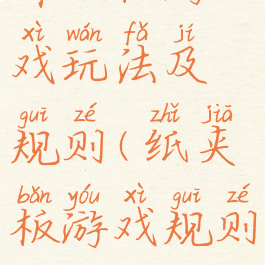 xì wán fǎ jí
戏玩法及
guī zé zhǐ jiā
规则(纸夹
bǎn yóu xì guī zé
板游戏规则